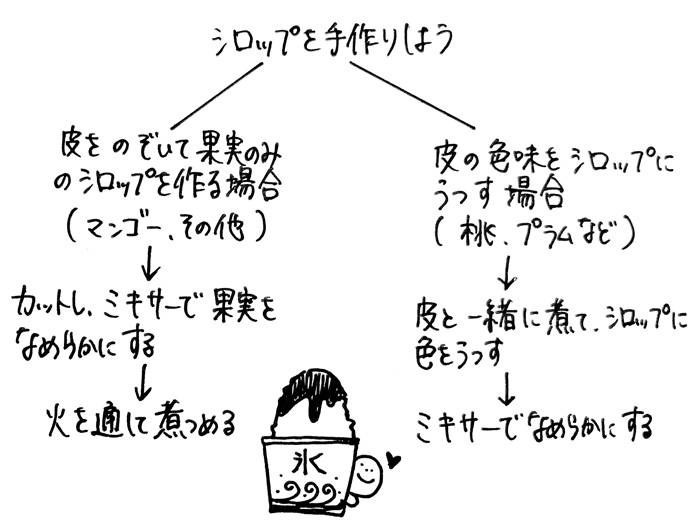 シロップを手作りしよう
皮をのぞいて果実のみ
のシロップを作る場合
(マンゴー、その他)
カットし、ミキサーで果実を
なめらかにする
火を通して煮つめる
皮の色味をシロップに
うつす場合
(桃、プラムなど)
皮と一緒に煮て、シロップに
色をうつす
ミキサーでなめらかにする
氷